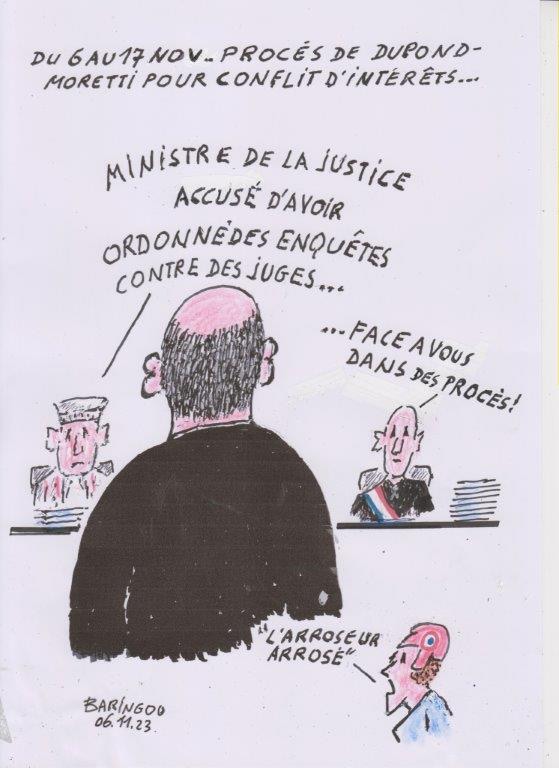 DU 6 AU 17 NOV.. PROCÉS DE DUPOND-
MORETTI POUR CONFLIT D'INTÉRÊTS...
MINISTRE DE LA JUSTICE
ACCUSÉ D'AVOIR
ORDONNÉ DES ENQUÊTES
CONTRE DES JUGES...
...FACE A VOUS
DANS DES PROCÈS!
"L'ARROSEUR
ARROSÉ"
BARINGOU
06.11.23